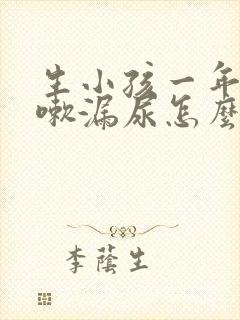 生小孩一年
嗽漏尿怎麼
李蔭生